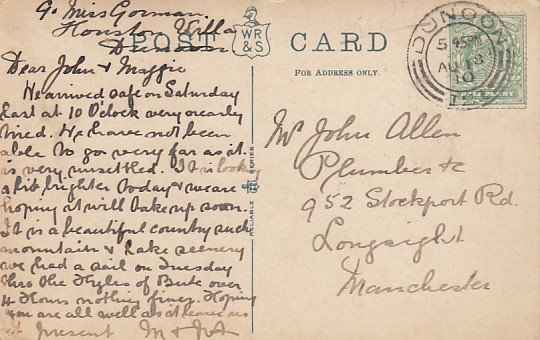 c/o Miss Gorman
Houston Villa
Dunoon
POST CARD
WR
& S
FOR ADDRESS ONLY.
RELIABLE SERIES
DUNOON
5 45PM
AU 18
10
HALFPENNY
Dear John & Maggie
We arrived safe on Saturday
East at 10 O'clock very nearly
tired. We have not been
able to go very far as it
is very unsettled. It is looking
a bit brighter today & we are
hoping it will take up soon.
It is a beautiful country such
mountain & Lake scenery
we had a sail on Tuesday
thro the Kyles of Bute over
4 Hours nothing finer. Hoping
you are all well as it leaves us
at present M & JA
Mr John Allen
Plumber &c
952 Stockport Rd.
Longsight
Manchester